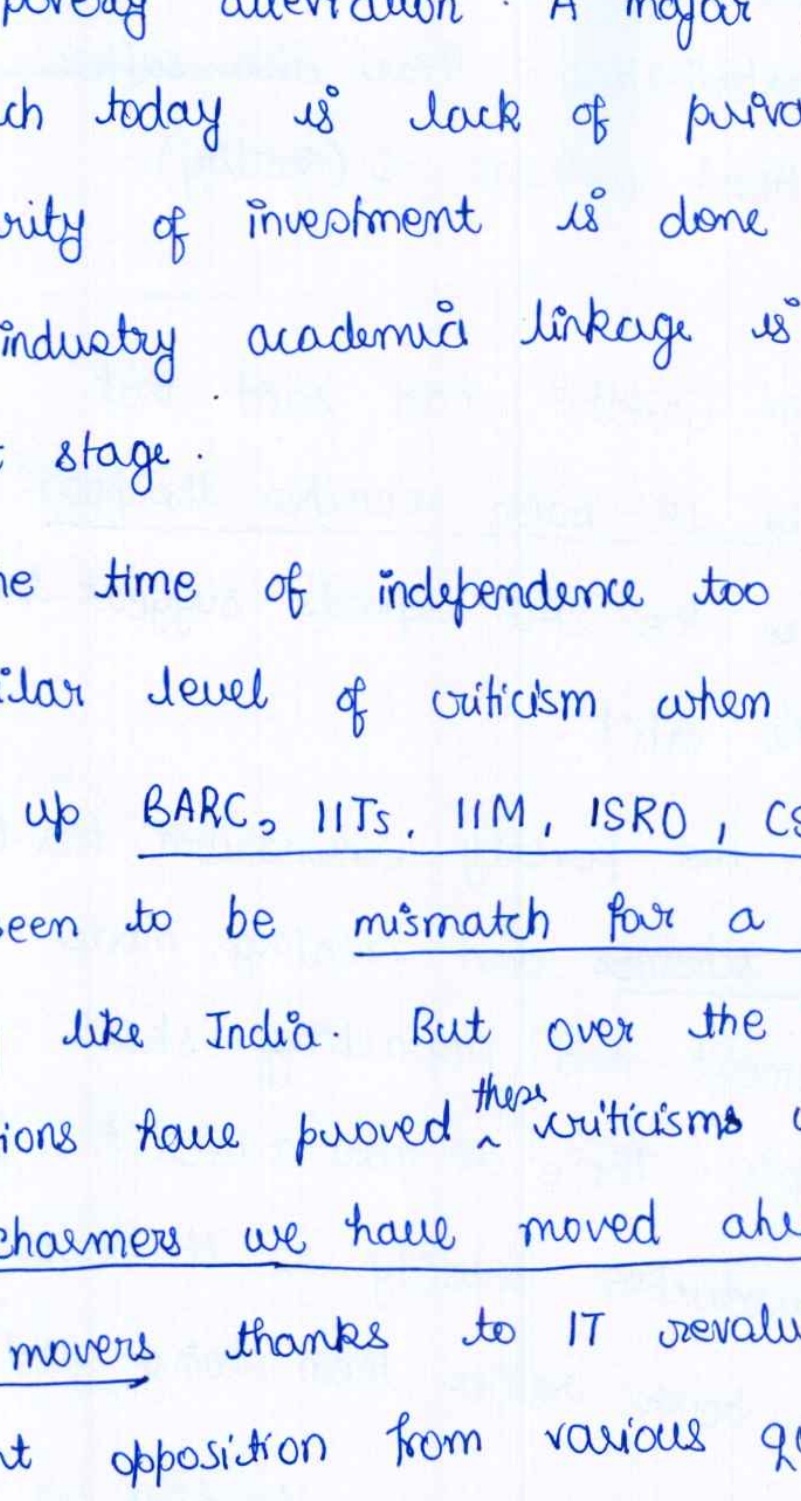 poverty alleviation. A major
ch today is lack of priva
rity of investment is done
industry academia linkage is
t stage.
ne time of independence too
ilar level of criticism when
up BARC, IITs, IIM, ISRO, CS
seen to be mismatch for a
like India. But over the
ions have proved these criticisms
charmers we have moved ahe
movers thanks to IT revalu
nt opposition from various qu